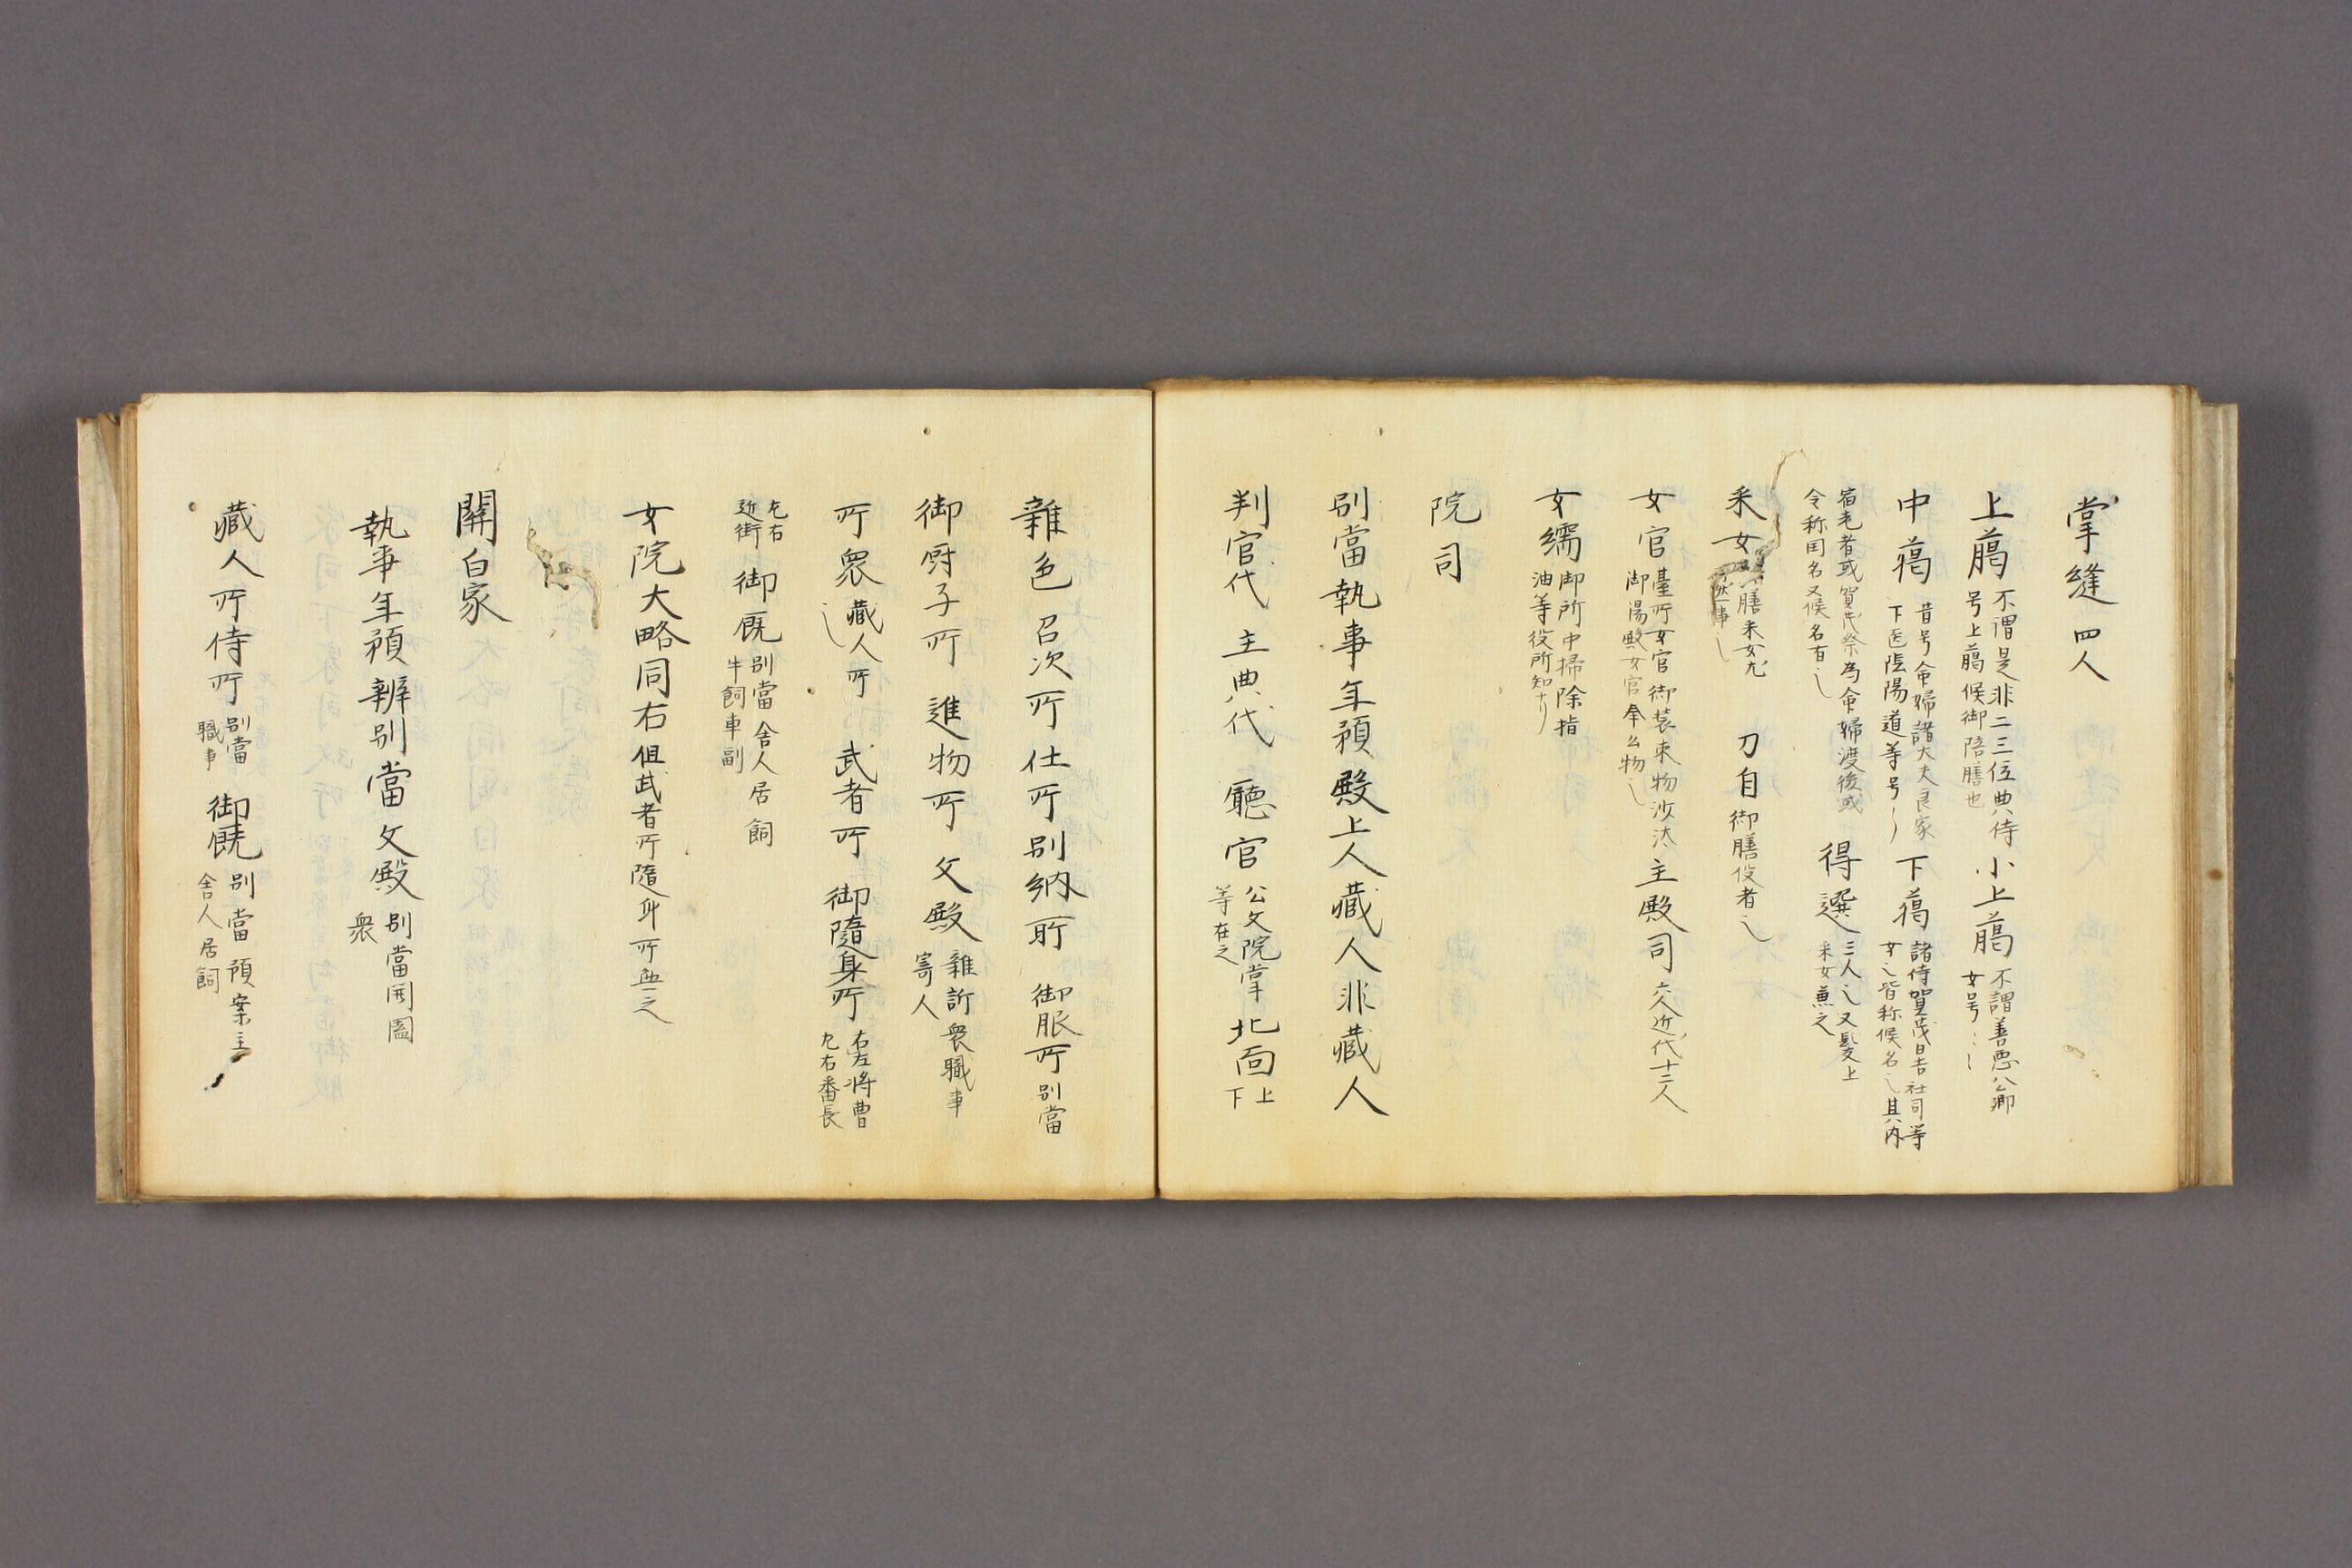 掌縫四人
上﨟 不謂是非二三位典侍 号上﨟候御陪膳也 小上﨟 不謂善悪公卿 女号
中﨟 昔号命婦諸大夫良家 下医陰陽道等号 下﨟 諸侍賀茂日吉社司等 女 皆称候名 其内
宿老者或賀茂祭為命婦渡後或 令称国名又候名有 得選 三人 又髪上 采女兼之
采女 膳采女尤 事 刀自 御膳役者
女官 臺所女官御装束物沙汰 御湯殿女官 物 主殿司 六人近代十二人
女孺 御所中掃除指 油等役所知ナリ
院司
別當執事年預殿上人蔵人非蔵人
判官代 主典代 廳官 公文院掌 等在之 北面 上 下
雜色召次所仕所別納所 御服所 別當
御厨子所 進物所 文殿 雜訴衆職事 寄人
所衆 蔵人所 武者所 御隨身所 右左將曹 左右番長
左右 近衛 御厩 別當舎人居飼 牛飼車副
女院大略同右但武者所隨身所無之
關白家
執事年預辨別當文殿 別當開闔 衆
蔵人所侍所 別當 職事 御厩 別當預案主 舎人居飼